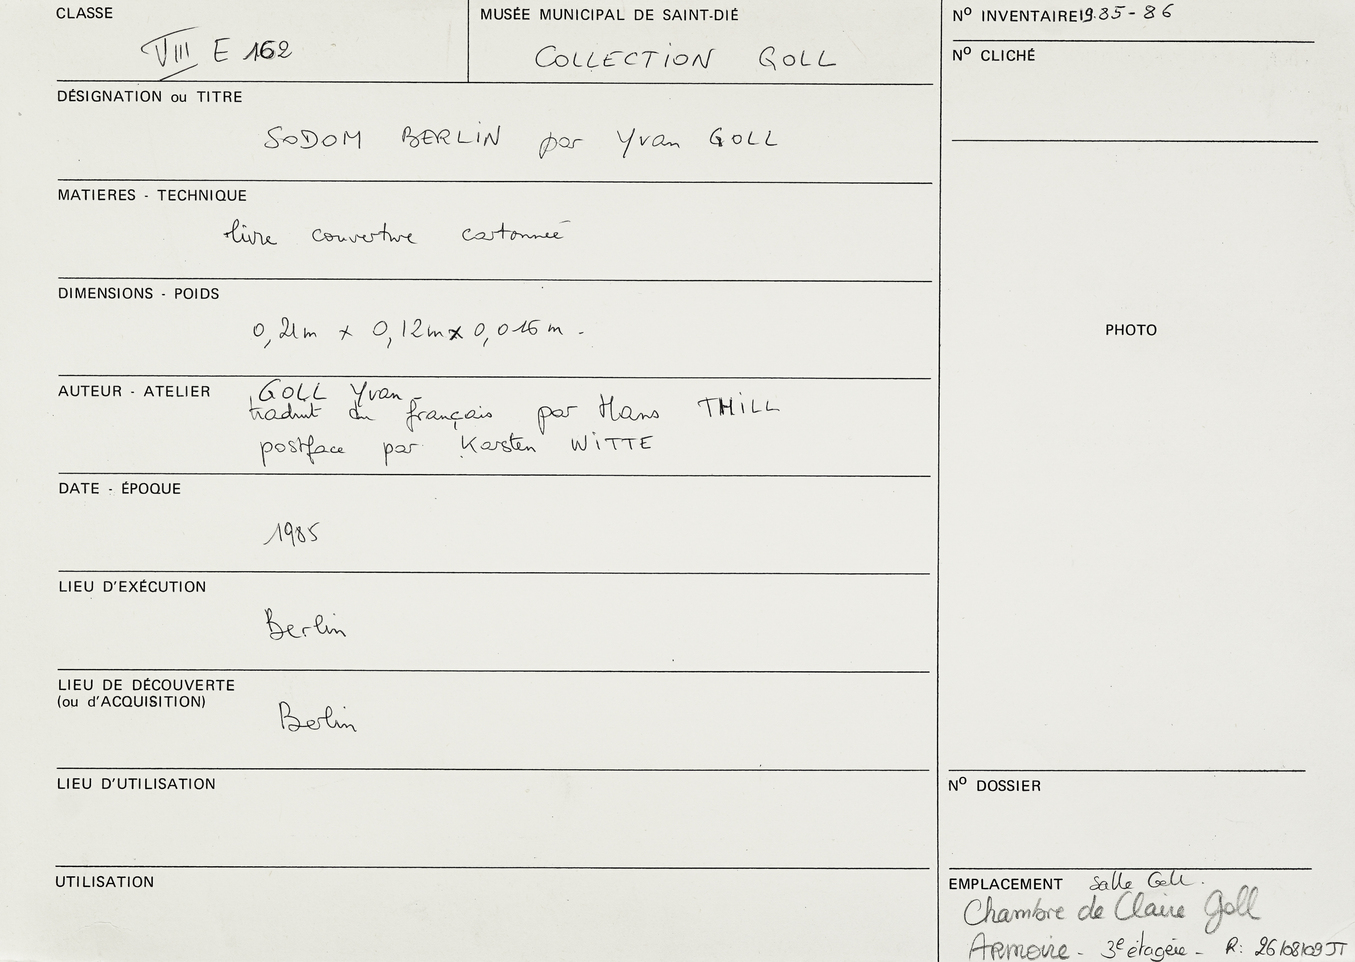 CLASSE
VIII E 162
MUSÉE MUNICIPAL DE SAINT-DIÉ
COLLECTION GOLL
Nº INVENTAIRE 1985-86
Nº CLICHÉ
DÉSIGNATION ou TITRE
SODOM BERLIN par Yvan GOLL
MATIERES - TECHNIQUE
livre couverture cartonnée
DIMENSIONS - POIDS
0,21m x 0,12m x 0,016 m -
PHOTO
AUTEUR - ATELIER
GOLL Yvan -
traduit du français par Hans THILL
postface par Karsten WITTE
DATE - ÉPOQUE
1985
LIEU D'EXÉCUTION
Berlin
LIEU DE DÉCOUVERTE
(ou d'ACQUISITION)
Berlin
LIEU D'UTILISATION
Nº DOSSIER
UTILISATION
EMPLACEMENT Salle Goll.
Chambre de Claire Goll
Armoire - 3e étagère - R: 26/08/09 JT